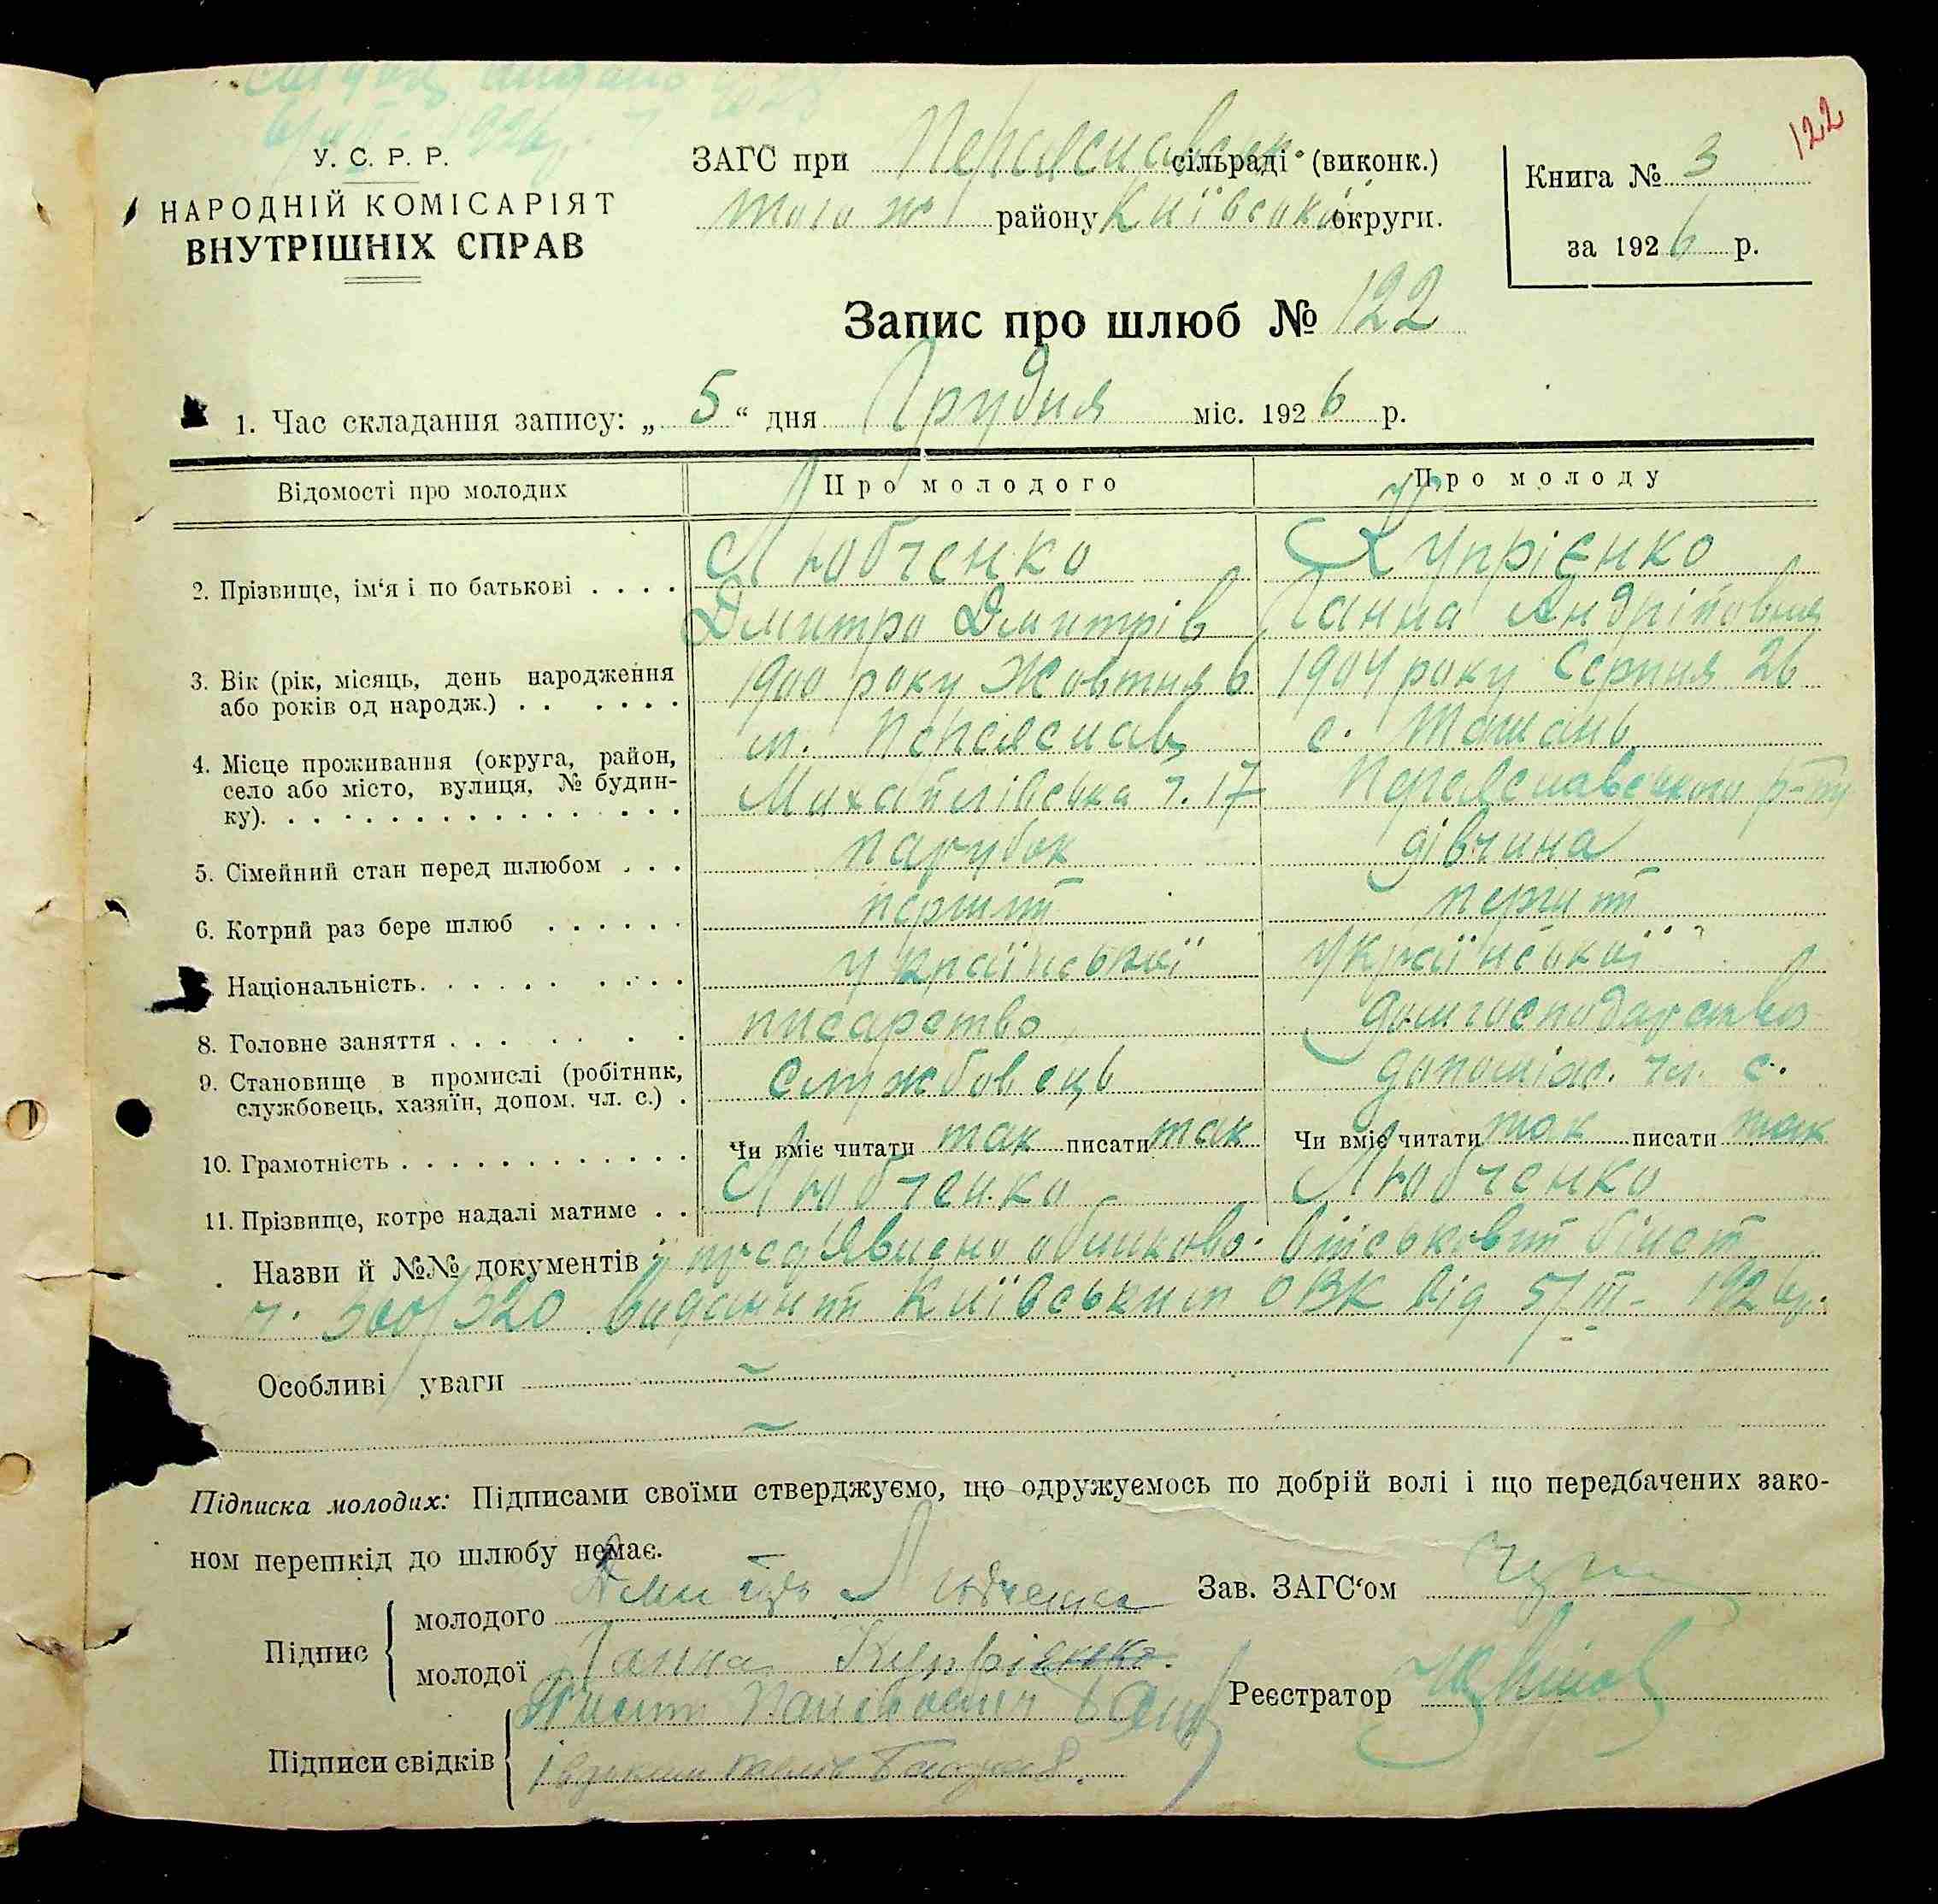 122
У. С. Р. Р.
НАРОДНІЙ КОМІСАРІЯТ
ВНУТРІШНІХ СПРАВ
ЗАГС при Переяславськ. сільраді (виконк.)
того ж району Київської округи.
Книга № 3
за 1926 р.
Запис про шлюб № 122
1. Час складання запису: „ 5 “ дня Грудня міс. 1926 р.
Відомості про молодих Про молодого Про молоду
2. Прізвище, ім‘я і по батькові . . . . Любченко Купрієнко
Дмитро Дмитрів Ганна Андріївна
3. Вік (рік, місяць, день народження або років од народж.) . . . . . . 1900 року Жовтня 6 1904 року Серпня 26
4. Місце проживання (округа, район, село або місто, вулиця, № будинку). . . . . . . . . . . . . . . . м. Переяслав с. Ташань
Михайлівська ч. 17 Переяславського р-ну
5. Сімейний стан перед шлюбом . . . парубок дівчина
6. Котрий раз бере шлюб . . . . . . перший перший
Національність. . . . . . . . . . української української
8. Головне заняття . . . . . . . писарство домгосподарство
9. Становище в промислі (робітник, службовець, хазяїн, допом. чл. с.) . службовець допоміж. чл. с.
10. Грамотність . . . . . . . . . . . . Чи вміє читати так писати так Чи вміє читати так писати так
11. Прізвище, котре надалі матиме . . Любченко Любченко
Назви й №№ документів пред'явлено військовий білет
ч. 300/320 виданий Київським ОВК від 5/III- 1926р.
Особливі уваги ~
~
Підписка молодих: Підписами своїми стверджуємо, що одружуємось по добрій волі і що передбачених зако-
ном перешкід до шлюбу немає.
Підпис молодого Дмитро Любченко Зав. ЗАГС‘ом
молодої Ганна Купрієнко. Реєстратор
Підписи свідків